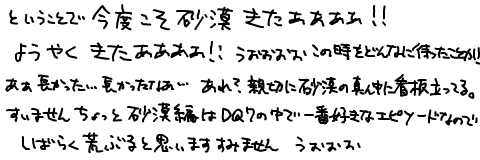 ということで 今度こそ 砂漠 きたああああ!!
ようやく きたああああ!! うおおおお この時をどんなに待ったことか!!
ああ長かった… 長かったなあ… あれ? 親切に砂漠の真ん中に看板立ってる。
すいません ちょっと 砂漠編はDQ7の中で一番好きなエピソードなので
しばらく荒ぶると思います すみません うおおお